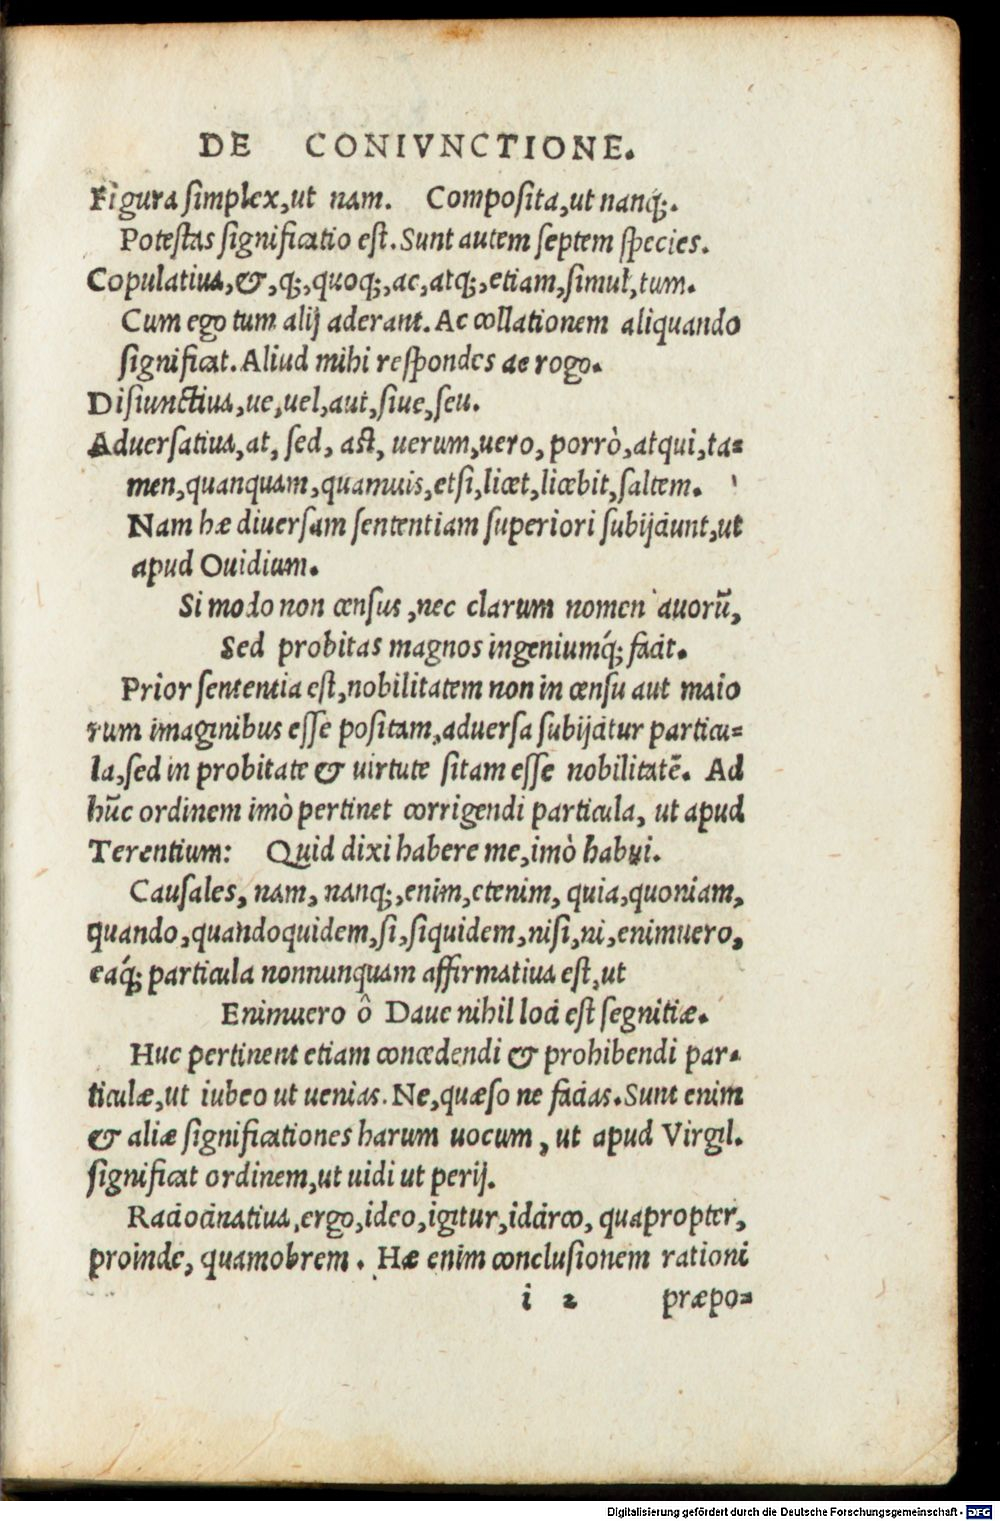 DE CONIVNCTIONE.
Figura simplex,ut nam. Composita,ut nanq;.
Potestas significatio est. Sunt autem septem species.
Copulatiua,&,q;,quoq;,ac,atq;,etiam,simul,tum.
Cum ego tum alij aderant. Ac collationem aliquando
significat. Aliud mihi respondes ac rogo.
Disiunctiua,ue,uel,aut,siue,seu.
Aduersatiua,at, sed, ast, uerum,uero, porrò,atqui,ta=
men,quanquam,quamuis,etsi,licet,licebit,saltem.
Nam hæ diuersam sententiam superiori subijciunt,ut
apud Ouidium.
Si modo non census,nec clarum nomen auorũ,
Sed probitas magnos ingeniumq́; facit.
Prior sententia est,nobilitatem non in censu aut maio
rum imaginibus esse positam,aduersa subijcitur particu=
la,sed in probitate & uirtute sitam esse nobilitatẽ. Ad
hũc ordinem imò pertinet corrigendi particula, ut apud
Terentium: Quid dixi habere me,imò habui.
Causales, nam, nanq;,enim,etenim, quia,quoniam,
quando,quandoquidem,si,siquidem,nisi,ni,enimuero,
eaq́; particula nonnunquam affirmatiua est,ut
Enimuero ô Daue nihil loci est segnitiæ.
Huc pertinent etiam concedendi & prohibendi par=
ticulæ,ut iubeo ut uenias. Ne,quæso ne facias. Sunt enim
& aliæ significationes harum uocum, ut apud Virgil.
significat ordinem,ut uidi ut perij.
Raciocinatiua,ergo,ideo,igitur,idcirco, quapropter,
proinde, quamobrem. Hæ enim conclusionem rationi
i 2 præpo=
Digitalisierung gefördert durch die Deutsche Forschungsgemeinschaft - DFG